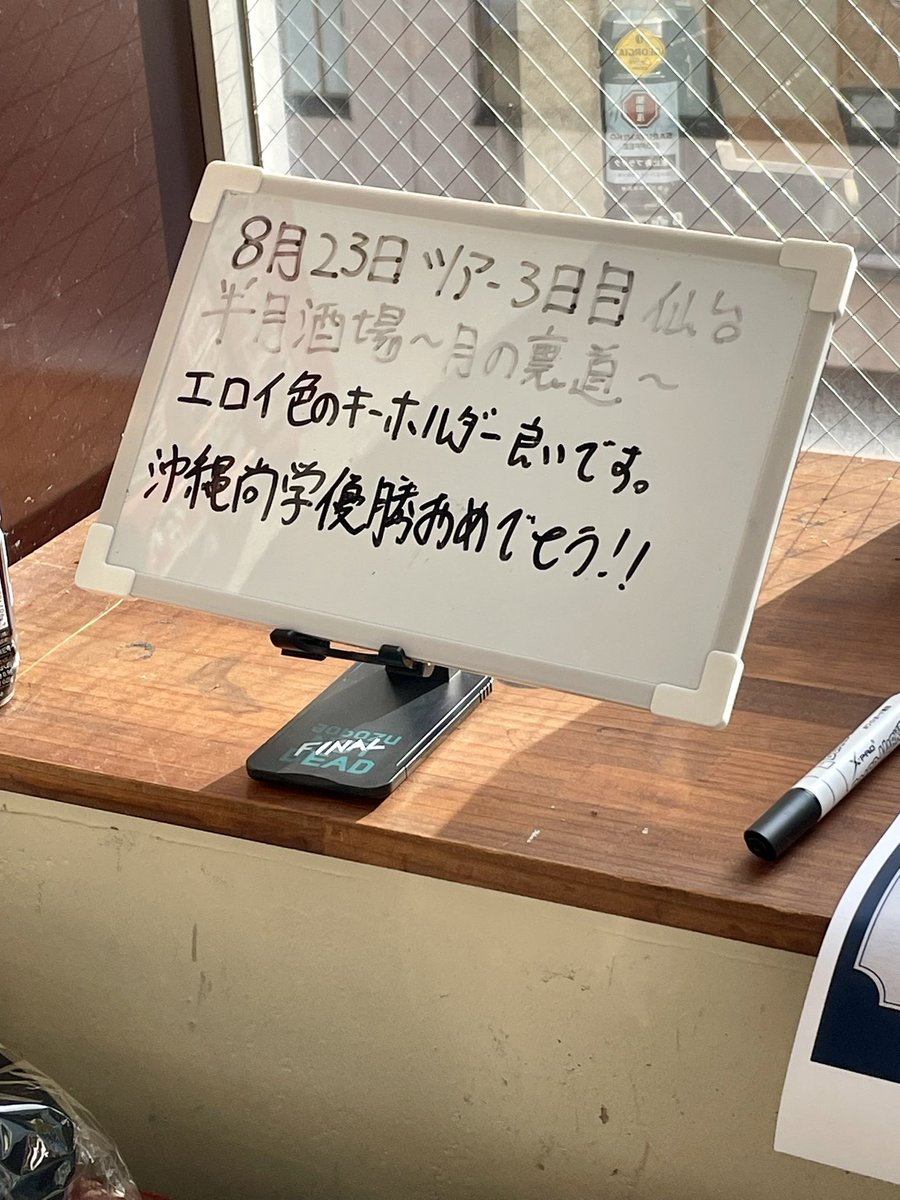 8月23日 ツアー3日目 仙台
半月酒場〜月の裏道〜
エロイ色のキーホルダー良いです。
沖縄尚学優勝おめでとう!!
FINAL
LEAD
GEORGIA
X-PRO